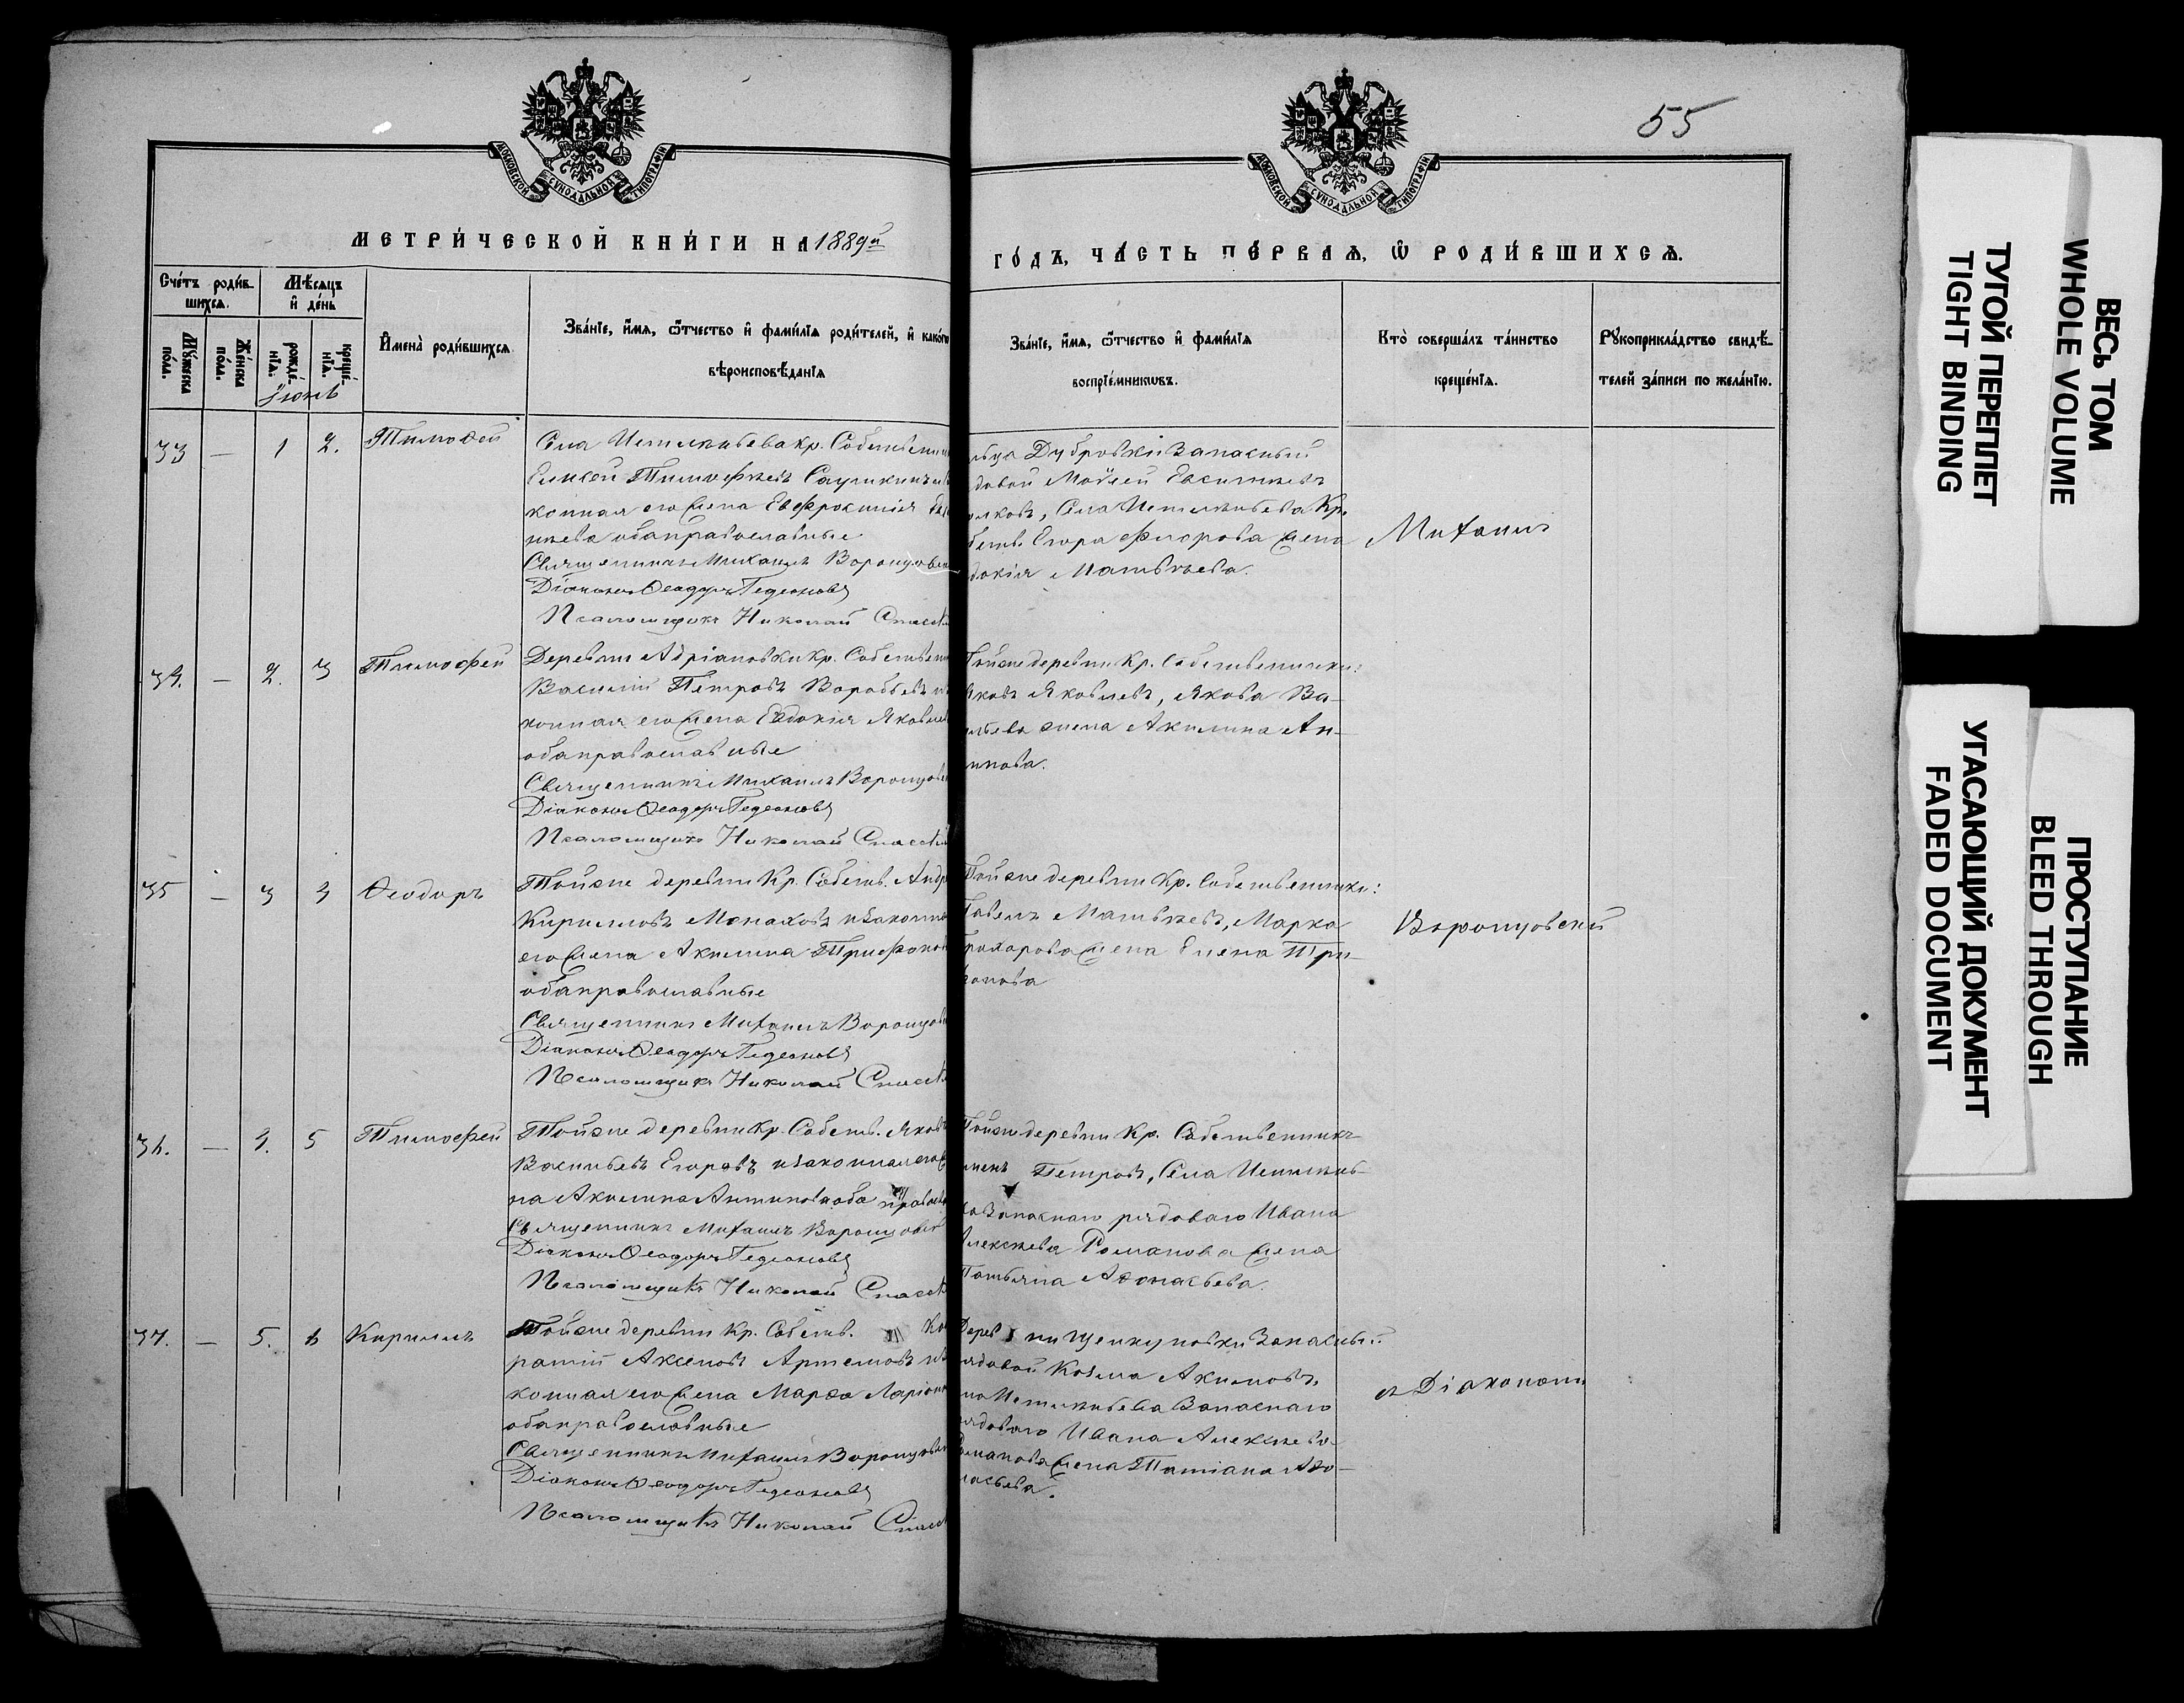 55
МОСКОВСКОЙ СУНОДАЛЬНОЙ ТИПОГРАФІИ
МОСКОВСКОЙ СУНОДАЛЬНОЙ ТИПОГРАФІИ
МЕТРИ́ЧЕСКОЙ КНИ́ГИ НА 1889й
ГО́ДЪ, ЧА́СТЬ ПЕ́РВАѦ, Ѡ҆ РОДИ́ВШИХСѦ.
Сче́тъ роди́в-
шихсѧ.
Мѣ́сѧцъ
и҆ де́нь
Мꙋ́жеска по́ла.
Же́нска по́ла.
рожде́-
нїѧ.
креще́-
нїѧ.
Іюнь
И҆мена̀ роди́вшихсѧ
Зва́нїе, и҆́мѧ, ѻ҆́тчество и҆ фами́лїѧ роди́телей, и҆ како́гѡ
вѣроисповѣ́данїѧ
Зва́нїе, и҆́мѧ, ѻ҆́тчество и҆ фами́лїѧ
воспрїе́мникѡвъ.
Кто̀ соверша́лъ та́инство
креще́нїѧ.
Рꙋкоприкла́дство свидѣ́-
телей за́писи по жела́нїю.
33 — 1 2. Тимофей
Села кр. Собственни
Елисей Тимофеевъ
конная его жена Евфросинія
обаправославные
Священникъ Михаилъ Воронцовск
Діаконъ Ѳеодоръ Гедеоновъ
Псаломщикъ Николай Спасск
Дубровки Запасный
довой Моѵсей
Села Кр.
Егора Флорова жена
докія Матвѣева.
Михаилъ
34. — 2. 3 Тимофей
Деревни Адріановки кр. Собствен
Василій Петровъ Воробьевъ
конная его жена Евдокія Яковле
обаправославные
Священникъ Михаилъ Воронцовс
Діаконъ Ѳеодоръ Гедеоновъ
Псаломщикъ Николай Спасск
Тойже деревни Кр. Собственники:
Яковъ Яковлевъ, Якова Ва-
ильева жена Акилина Ан-
типова.
35 — 3 3 Ѳеодоръ
Тойже деревни Кр. Собств. Андр
Кирилловъ Монаховъ и законна
его жена Акилина Трифонов
обаправославные
Священникъ Михаилъ Воронцовс
Діаконъ Ѳеодоръ Гедеоновъ
Псаломщикъ Николай Спасск
Тойже деревни Кр. Собственники:
Павелъ Матвѣевъ, Марка
Прохорова жена Елена Три-
фонова
Воронцовский
36. — 4. 5 Тимофей
Тойже деревни Кр. Собств. Яковъ
Васильевъ Егоровъ и законная его же
на Акилина Антипова оба правосл
Священникъ Михаилъ Воронцовск
Діаконъ Ѳеодоръ Гедеоновъ
Псаломщикъ Николай Спасск
Тойже деревни Кр. Собственникъ
Петровъ, Села
Запаснаго рядоваго Ивана
Алексѣева Романова жена
Татьяна Аѳонасьева.
37. — 5. 6 Кириллъ
Тойже деревни Кр. Собств. Ко
ратій Аксеновъ Артемовъ
конная его жена Марѳа Ларіон
обаправославные
Священникъ Михаилъ Воронцовск
Діаконъ Ѳеодоръ Гедеоновъ
Псаломщикъ Николай Спасск
Деревни Запасный
рядовой Козма Акимовъ,
Запаснаго
рядоваго Ивана Алексѣева
Романова жена Татіана Аѳо-
насьева.
съ Діакономъ
ТУГОЙ ПЕРЕПЛЕТ
TIGHT BINDING
ВЕСЬ ТОМ
WHOLE VOLUME
УГАСАЮЩИЙ ДОКУМЕНТ
FADED DOCUMENT
ПРОСТУПАНИЕ
BLEED THROUGH